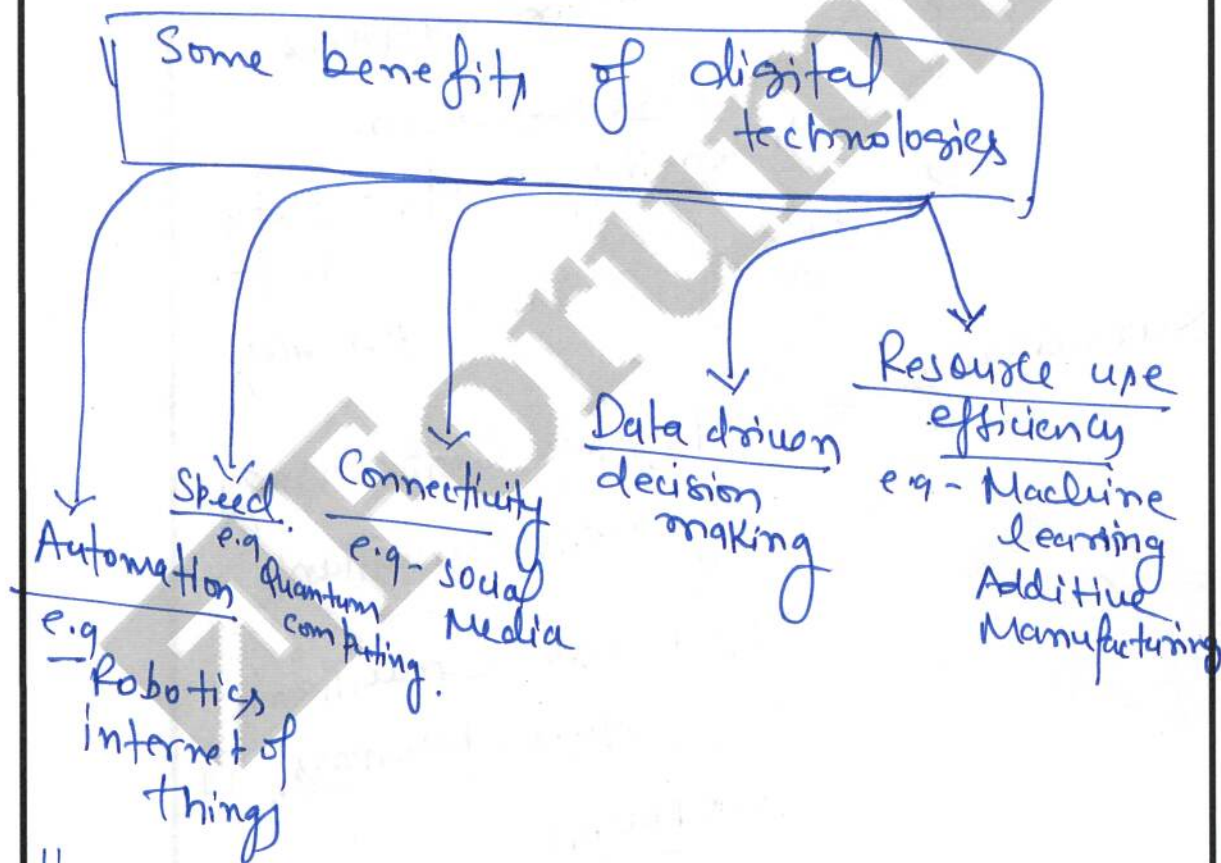 Some benefits of digital
technologies
Automation
e.g
Robotics
internet of
things
Speed.
e.g
Quantum
computing.
Connectivity
e.g - social
Media
Data driven
decision
making
Resource use
efficiency
e.g - Machine
learning
Additive
Manufacturing
Forum